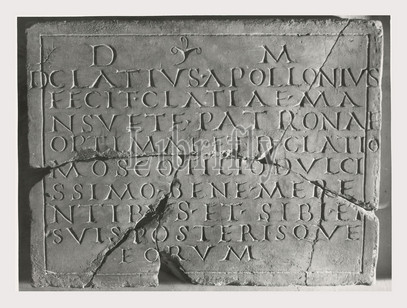 D M
D CLATIVS·APOLLONIVS
FECIT·CLATIAE·MA
NSVETE·PATRONAE
OPTIMAE·ET·D·CLATIO
MOSCO·FILIO·DVLCI
SSIMO·BENE·MERE
NTIBVS·ET·SIBI·ET
SVIS·POSTERISQVE
EORVM